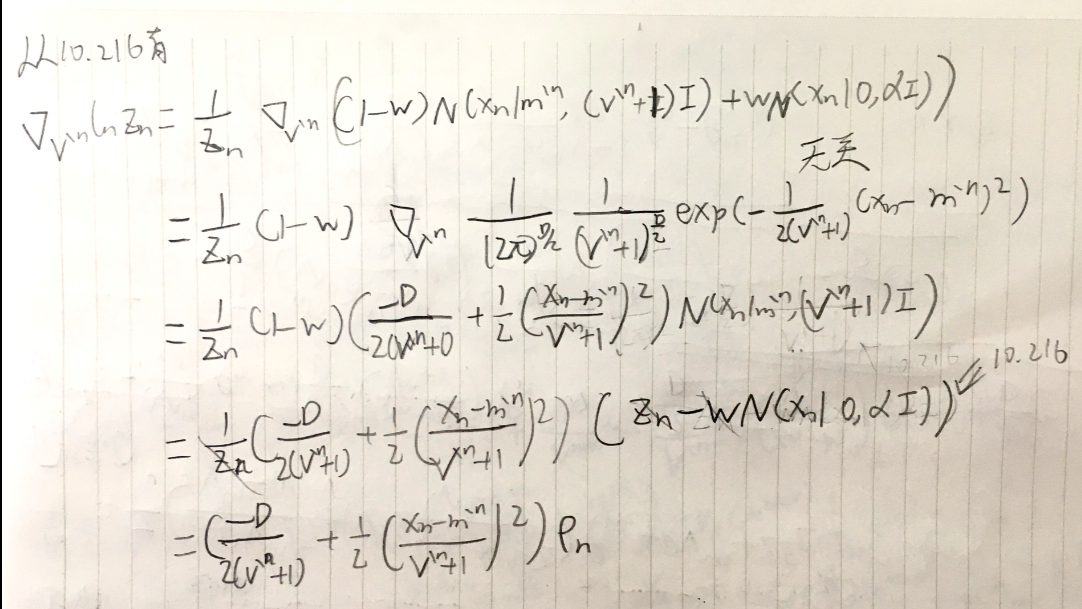 从10.216有
∇_{v^{\n}} ln Z_n = \frac{1}{Z_n} ∇_{v^{\n}} ((1-w) N(x_n|m^{\n}, (v^{\n}+1)I) + wN(x_n|0,αI))
无关
= \frac{1}{Z_n} (1-w) ∇_{v^{\n}} \frac{1}{(2π)^{D/2}} \frac{1}{(v^{\n}+1)^{\frac{D}{2}}} exp(-\frac{1}{2(v^{\n}+1)} (x_n - m^{\n})^2)
= \frac{1}{Z_n} (1-w) (\frac{-D}{2(v^{\n}+1)} + \frac{1}{2} (\frac{x_n-m^{\n}}{v^{\n}+1})^2) N(x_n|m^{\n}, (v^{\n}+1)I)
= \frac{1}{Z_n} (\frac{-D}{2(v^{\n}+1)} + \frac{1}{2} (\frac{x_n-m^{\n}}{v^{\n}+1})^2) (Z_n - wN(x_n|0,αI)) ⇐ 10.216
= (\frac{-D}{2(v^{\n}+1)} + \frac{1}{2} (\frac{x_n-m^{\n}}{v^{\n}+1})^2) ρ_n